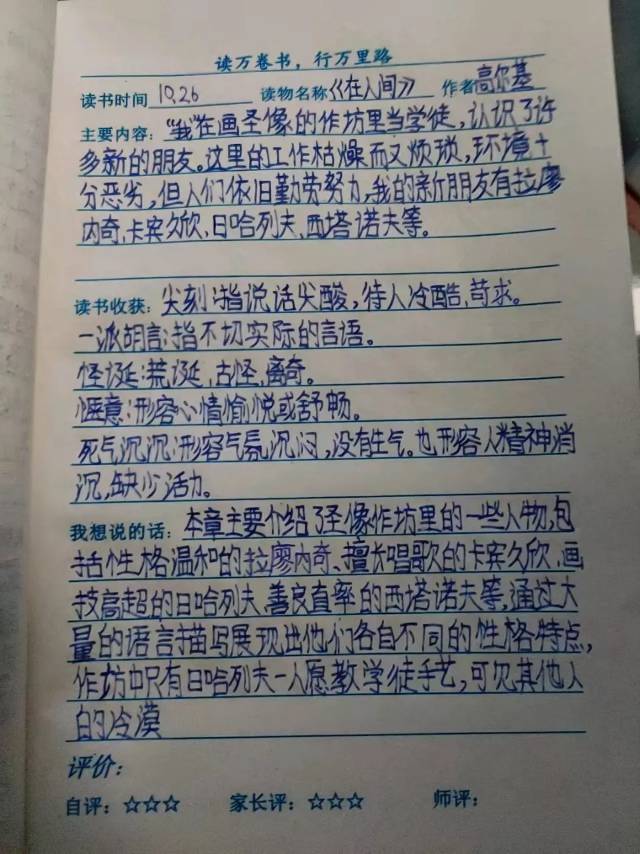 读万卷书，行万里路
读书时间 10.26 读物名称《在人间》 作者高尔基
主要内容："我"在画圣像的作坊里当学徒，认识了许
多新的朋友。这里的工作枯燥而又烦琐，环境十
分恶劣，但人们依旧勤劳努力，我的新朋友有拉廖
内奇、卡宾久欣、日哈列夫、西塔诺夫等。
读书收获：尖刻：指说话尖酸，待人冷酷，苛求。
一派胡言：指不切实际的言语。
怪诞：荒诞，古怪，离奇。
惬意：形容心情愉悦或舒畅。
死气沉沉：形容气氛沉闷，没有生气。也形容人精神消
沉，缺少活力。
我想说的话：本章主要介绍了圣像作坊里的一些人物，包
括性格温和的拉廖内奇、擅长唱歌的卡宾久欣、画
技高超的日哈列夫、善良直率的西塔诺夫等，通过大
量的语言描写展现出他们各自不同的性格特点，
作坊中只有日哈列夫一人愿教学徒手艺，可见其他人
的冷漠
评价：
自评：☆☆☆ 家长评：☆☆☆ 师评：